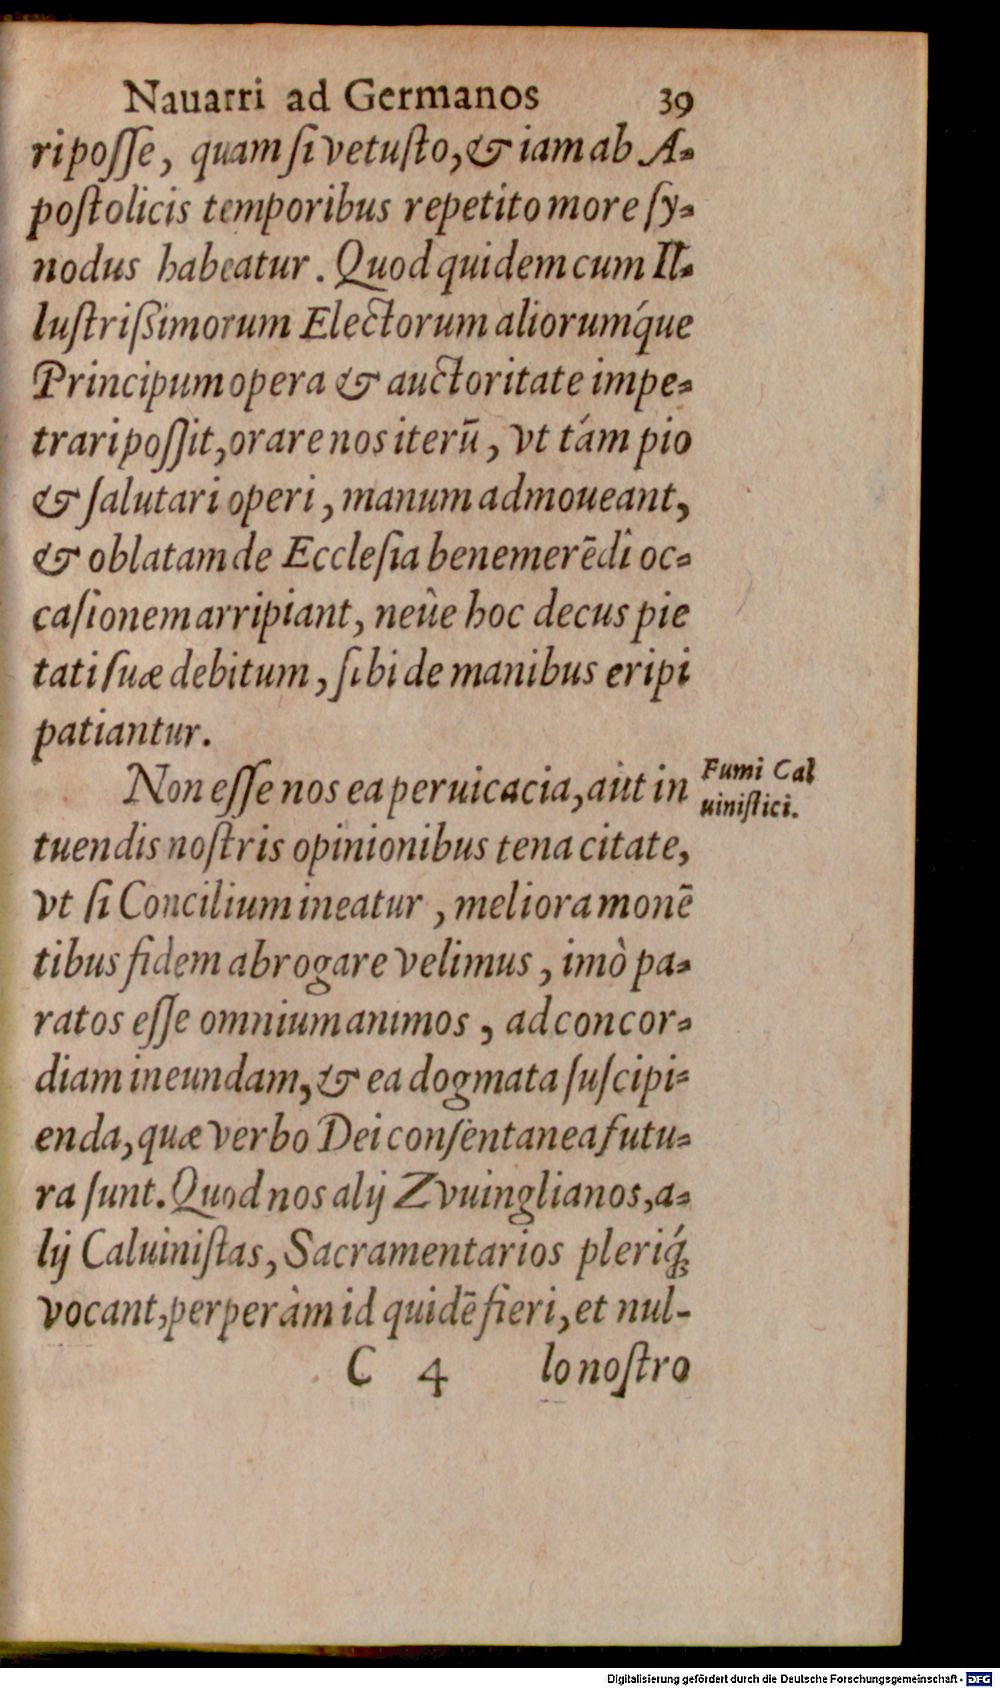 Nauarri ad Germanos 39
ri posſe, quam ſi vetuſto, & iam ab A-
poſtolicis temporibus repetito more ſy-
nodus habeatur. Quod quidem cum Il-
luſtrißimorum Electorum aliorumq́ue
Principum opera & auctoritate impe-
trari poſſit, orare nos iterū, vt tám pio
& ſalutari operi, manum admoueant,
& oblatam de Eccleſia benemerēdi oc-
caſionem arripiant, neûe hoc decus pie
tati ſuæ debitum, ſibi de manibus eripi
patiantur.
Non eſſe nos ea peruicacia, aút in
tuendis noſtris opinionibus tenacitate,
vt ſi Concilium ineatur, meliora monē
tibus fidem abrogare velimus, imò pa-
ratos eſſe omnium animos, ad concor-
diam ineundam, & ea dogmata ſuſcipi-
enda, quæ verbo Dei conſentanea futu-
ra ſunt. Quod nos alij Zvuinglianos, a-
lij Caluiniſtas, Sacramentarios pleriq́;
vocant, perperàm id quidē fieri, et nul-
C 4 lo noſtro
Fumi Cal
uiniſtici.
Digitalisierung gefördert durch die Deutsche Forschungsgemeinschaft - DFG